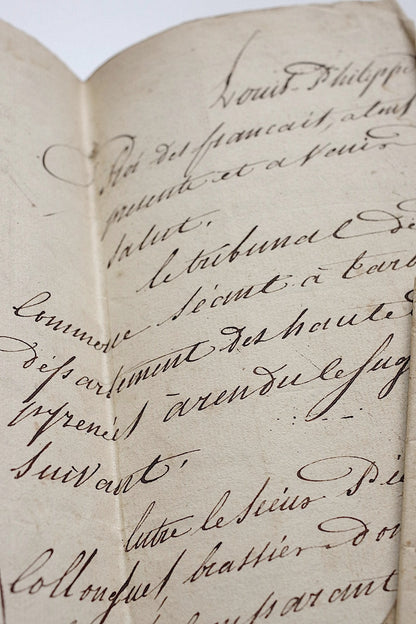 Louis-Philippe
Roi des français, a tous
presents et a venir
Salut.
le tribunal de
Commerce séant à tarb
départment des haute
pyrenées à rendu le jug
Suivant.
Entre le sieur Pie
Collongues, brassier Do
comparant